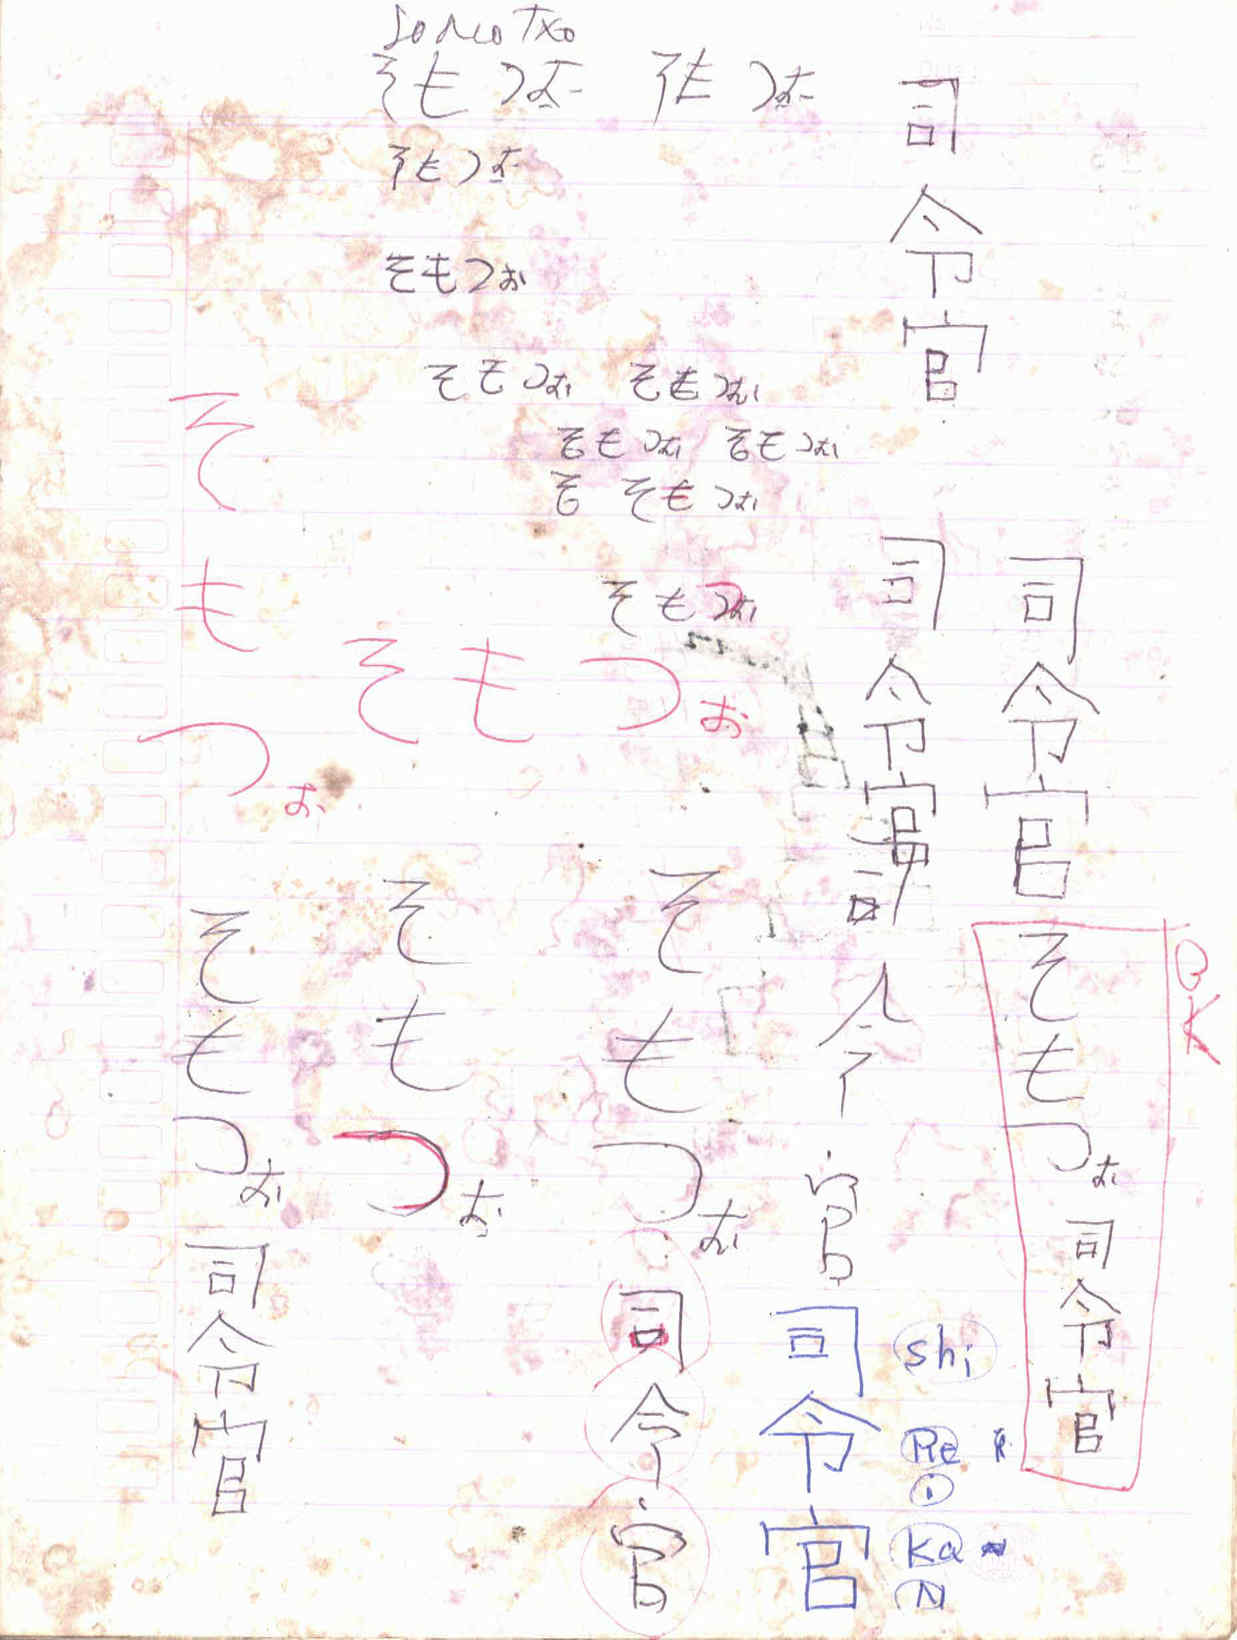 そもつぉ そもつぉ
そもつぉ
そもつぉ
そもつぉ そもつぉ
そもつぉ そもつぉ
そ そもつぉ
そもつぉ
司令官
司令官
司令官
そもつぉ
そもつぉ
OK
そもつぉ司令官
司
令
官
そもつぉ司令官
そもつぉ
そもつぉ司令官
司令官
shi
Re
i
Ka
N